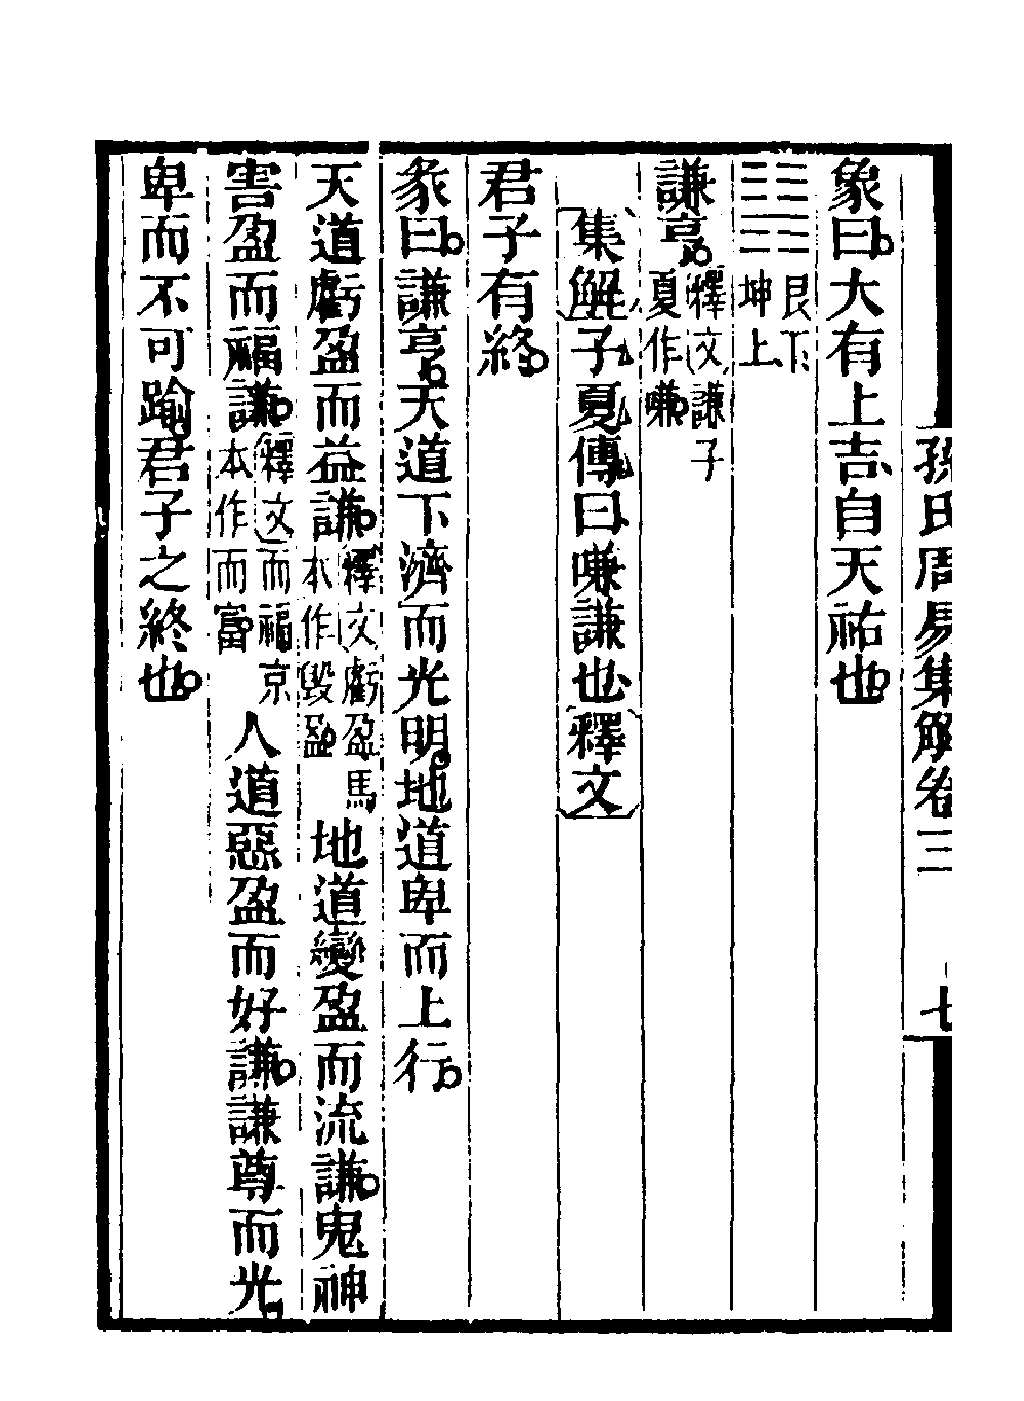 孫氏周易集解卷三 七
象曰。大有上吉、自天祐也。
䷎ 艮下坤上
謙亨。釋文謙子夏作嗛。
集解子夏傳曰、嗛謙也、釋文
君子有終。
彖曰。謙亨。天道下濟而光明。地道卑而上行。
天道虧盈而益謙。釋文虧盈馬本作毀盈。地道變盈而流謙。鬼神
害盈而福謙。釋文而福京本作而富。人道惡盈而好謙。謙尊而光。
卑而不可踰。君子之終也。